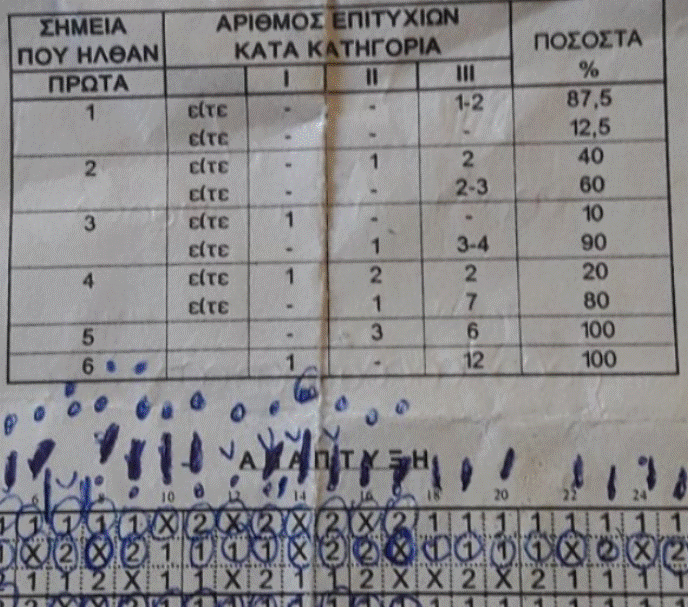 ΣΗΜΕΙΑ ΑΡΙΘΜΟΣ ΕΠΙΤΥΧΙΩΝ
ΠΟΥ ΗΛΘΑΝ ΚΑΤΑ ΚΑΤΗΓΟΡΙΑ ΠΟΣΟΣΤΑ
ΠΡΩΤΑ I II III %
1 είτε - - 1-2 87,5
είτε - - - 12,5
2 είτε - 1 2 40
είτε - - 2-3 60
3 είτε 1 - - 10
είτε - 1 3-4 90
4 είτε 1 2 2 20
είτε - 1 7 80
5 - 3 6 100
6 1 - 12 100
ΑΝΑΠΤΥΞΗ
6 8 10 12 14 16 18 20 22 24
1 1 1 1 1 X 2 X 2 X 2 X 2 1 1 1 1 1 1 1 1 1
1 X 2 X 2 1 1 1 1 X 2 2 X 1 1 1 1 X 2 X 2
2 1 1 2 X 1 1 X 2 1 1 2 X X 2 X 2 1 1 1 1